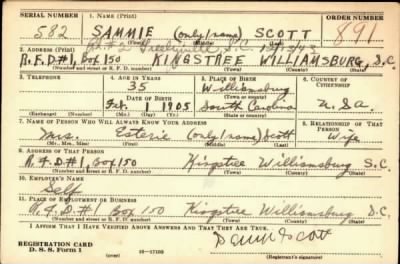 SERIAL NUMBER 1. NAME (Print) ORDER NUMBER
582 SAMMIE (only/name) SCOTT 891
(First) (Middle) (Last)
R.F.D. #2 Greeleyville S.C. 12/15/43
2. ADDRESS (Print)
R.F.D#1, Box 150 KINGSTREE WILLIAMSBURG, S.C.
(Number and street or R. F. D. number) (Town) (County) (State)
3. TELEPHONE 4. AGE IN YEARS 5. PLACE OF BIRTH 6. COUNTRY OF CITIZENSHIP
35 Williamsburg
DATE OF BIRTH (Town or county)
Feb. 1 1905 South Carolina U.S.A.
(Exchange) (Number) (Mo.) (Day) (Yr.) (State or country)
7. NAME OF PERSON WHO WILL ALWAYS KNOW YOUR ADDRESS 8. RELATIONSHIP OF THAT PERSON
Mrs. Esterie (only/name) Scott Wife
(Mr., Mrs., Miss) (First) (Middle) (Last)
9. ADDRESS OF THAT PERSON
R.F.D#1, Box 150 Kingstree Williamsburg S.C.
(Number and street or R. F. D. number) (Town) (County) (State)
10. EMPLOYER'S NAME
Self
11. PLACE OF EMPLOYMENT OR BUSINESS
R.F.D#1 Box 150 Kingstree Williamsburg S.C.
(Number and street or R. F. D. number) (Town) (County) (State)
I AFFIRM THAT I HAVE VERIFIED ABOVE ANSWERS AND THAT THEY ARE TRUE.
Scott
REGISTRATION CARD
D. S. S. Form 1 (Registrant's signature)